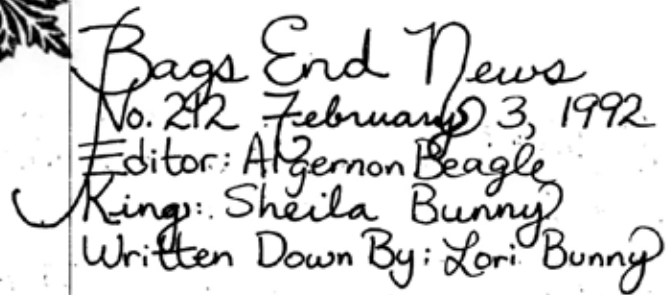 Bags End News
No. 212 February 3, 1992
Editor: Algernon Beagle
King: Sheila Bunny
Written Down By: Lori Bunny